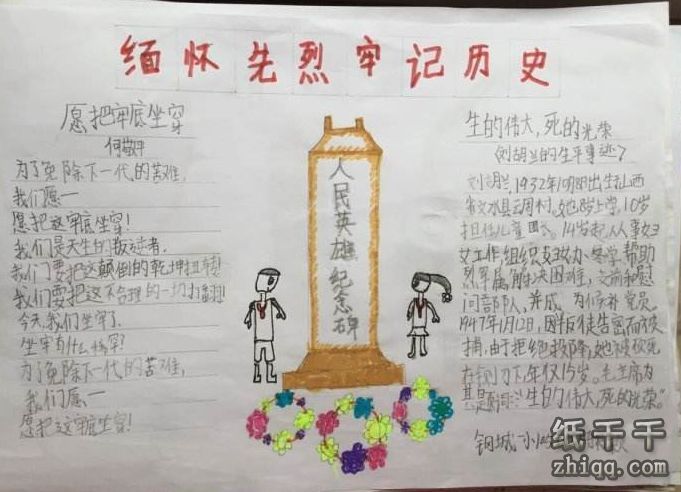 缅怀先烈牢记历史
愿把牢底坐穿
何敬平
为了免除下一代的苦难，
我们愿一
愿把这牢底坐穿！
我们是天生的叛逆者，
我们要把这颠倒的乾坤扭转！
我们要把这不合理的一切打翻！
今天，我们坐牢了，
坐牢有什么稀罕？
为了免除下一代的苦难，
我们愿一
愿把这牢底坐穿！
人民英雄纪念碑
生的伟大，死的光荣
《刘胡兰的生平事迹》
刘胡兰，1932年10月8日出生山西
省文水县云周村，她8岁上学，10岁
担任儿童团长。14岁起人人事妇
女工作，组织支政办冬学，帮助
烈军属解决困难，支前和慰
问部队，并成为候补党员。
1947年1月12日，因叛徒告密而被
捕，由于拒绝投降，她被砍死
在铡刀下，年仅15岁。毛主席为
其题词：“生的伟大，死的光荣。”
钢城小
纸千千
zhiqq.com